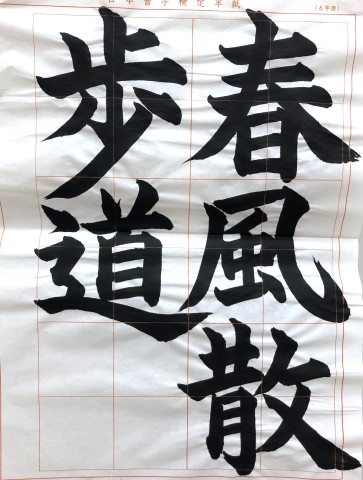 日本習字検定半紙
(6字用)
春風散
歩道